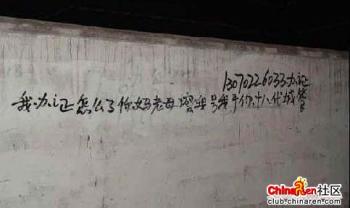 13070226033办证
我办证怎么了你老母擦我号我干你十八代城管
ChinaRen社区
club.chinaren.com